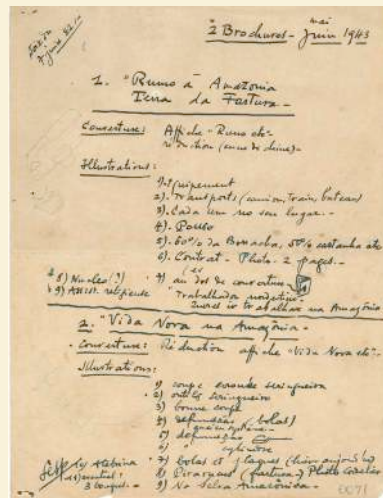 2 Brochures - Juin 1943
mai
1. "Rumo à Amazonia
Terra da Fartura -
Couverture: Affiche "Rumo etc"-
réduction (encre de chine)-
Illustrations:
1). Equipement
2). Transports (camion, train, bateau)
3). Cada um no seu lugar. -
4). Pouso
5). 60% da Borracha, 50% castanha etc
6). Contrat - Photo - 2 pages. -
7) au dos de couverture
Trabalhador nordestino
ir trabalhar na Amazônia
8) Nucleo (?)
9) Assist. religieuse
2. "Vida Nova na Amazônia -
Couverture: Réduction affiche "Vida Nova etc"-
Illustrations:
1) coupe estrada seringueira
2) outils seringueiro
3) bonne coupe
4) defumação (bolas)
5) defumação
6) cylindre
7) bolas et plaques
8) Pirarucus (fartura) Photo
9) Na Selva Amazônica -
10) Atebrina
11)
3 coupes -
0071